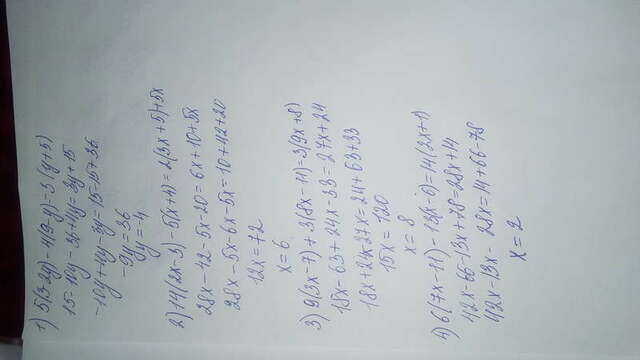 1) 5(3-2y)-4(9-y)=3(y+5)
15-10y-36+4y=3y+15
-10y+4y-3y=15-15+36
-9y=36
y=-4
2) 14(2x-3)-5(x+4)=2(3x+5)+5x
28x-42-5x-20=6x+10+5x
28x-5x-6x-5x=10+42+20
12x=72
x=6
3) 9(3x-7)+3(8x-11)=3(9x+8)
18x-63+24x-33=27x+24
18x+24x-27x=24+63+33
15x=120
x=8
4) 6(7x-11)-13(x-6)=14(2x+1)
42x-66-13x+78=28x+14
42x-13x-28x=14+66-78
x=2